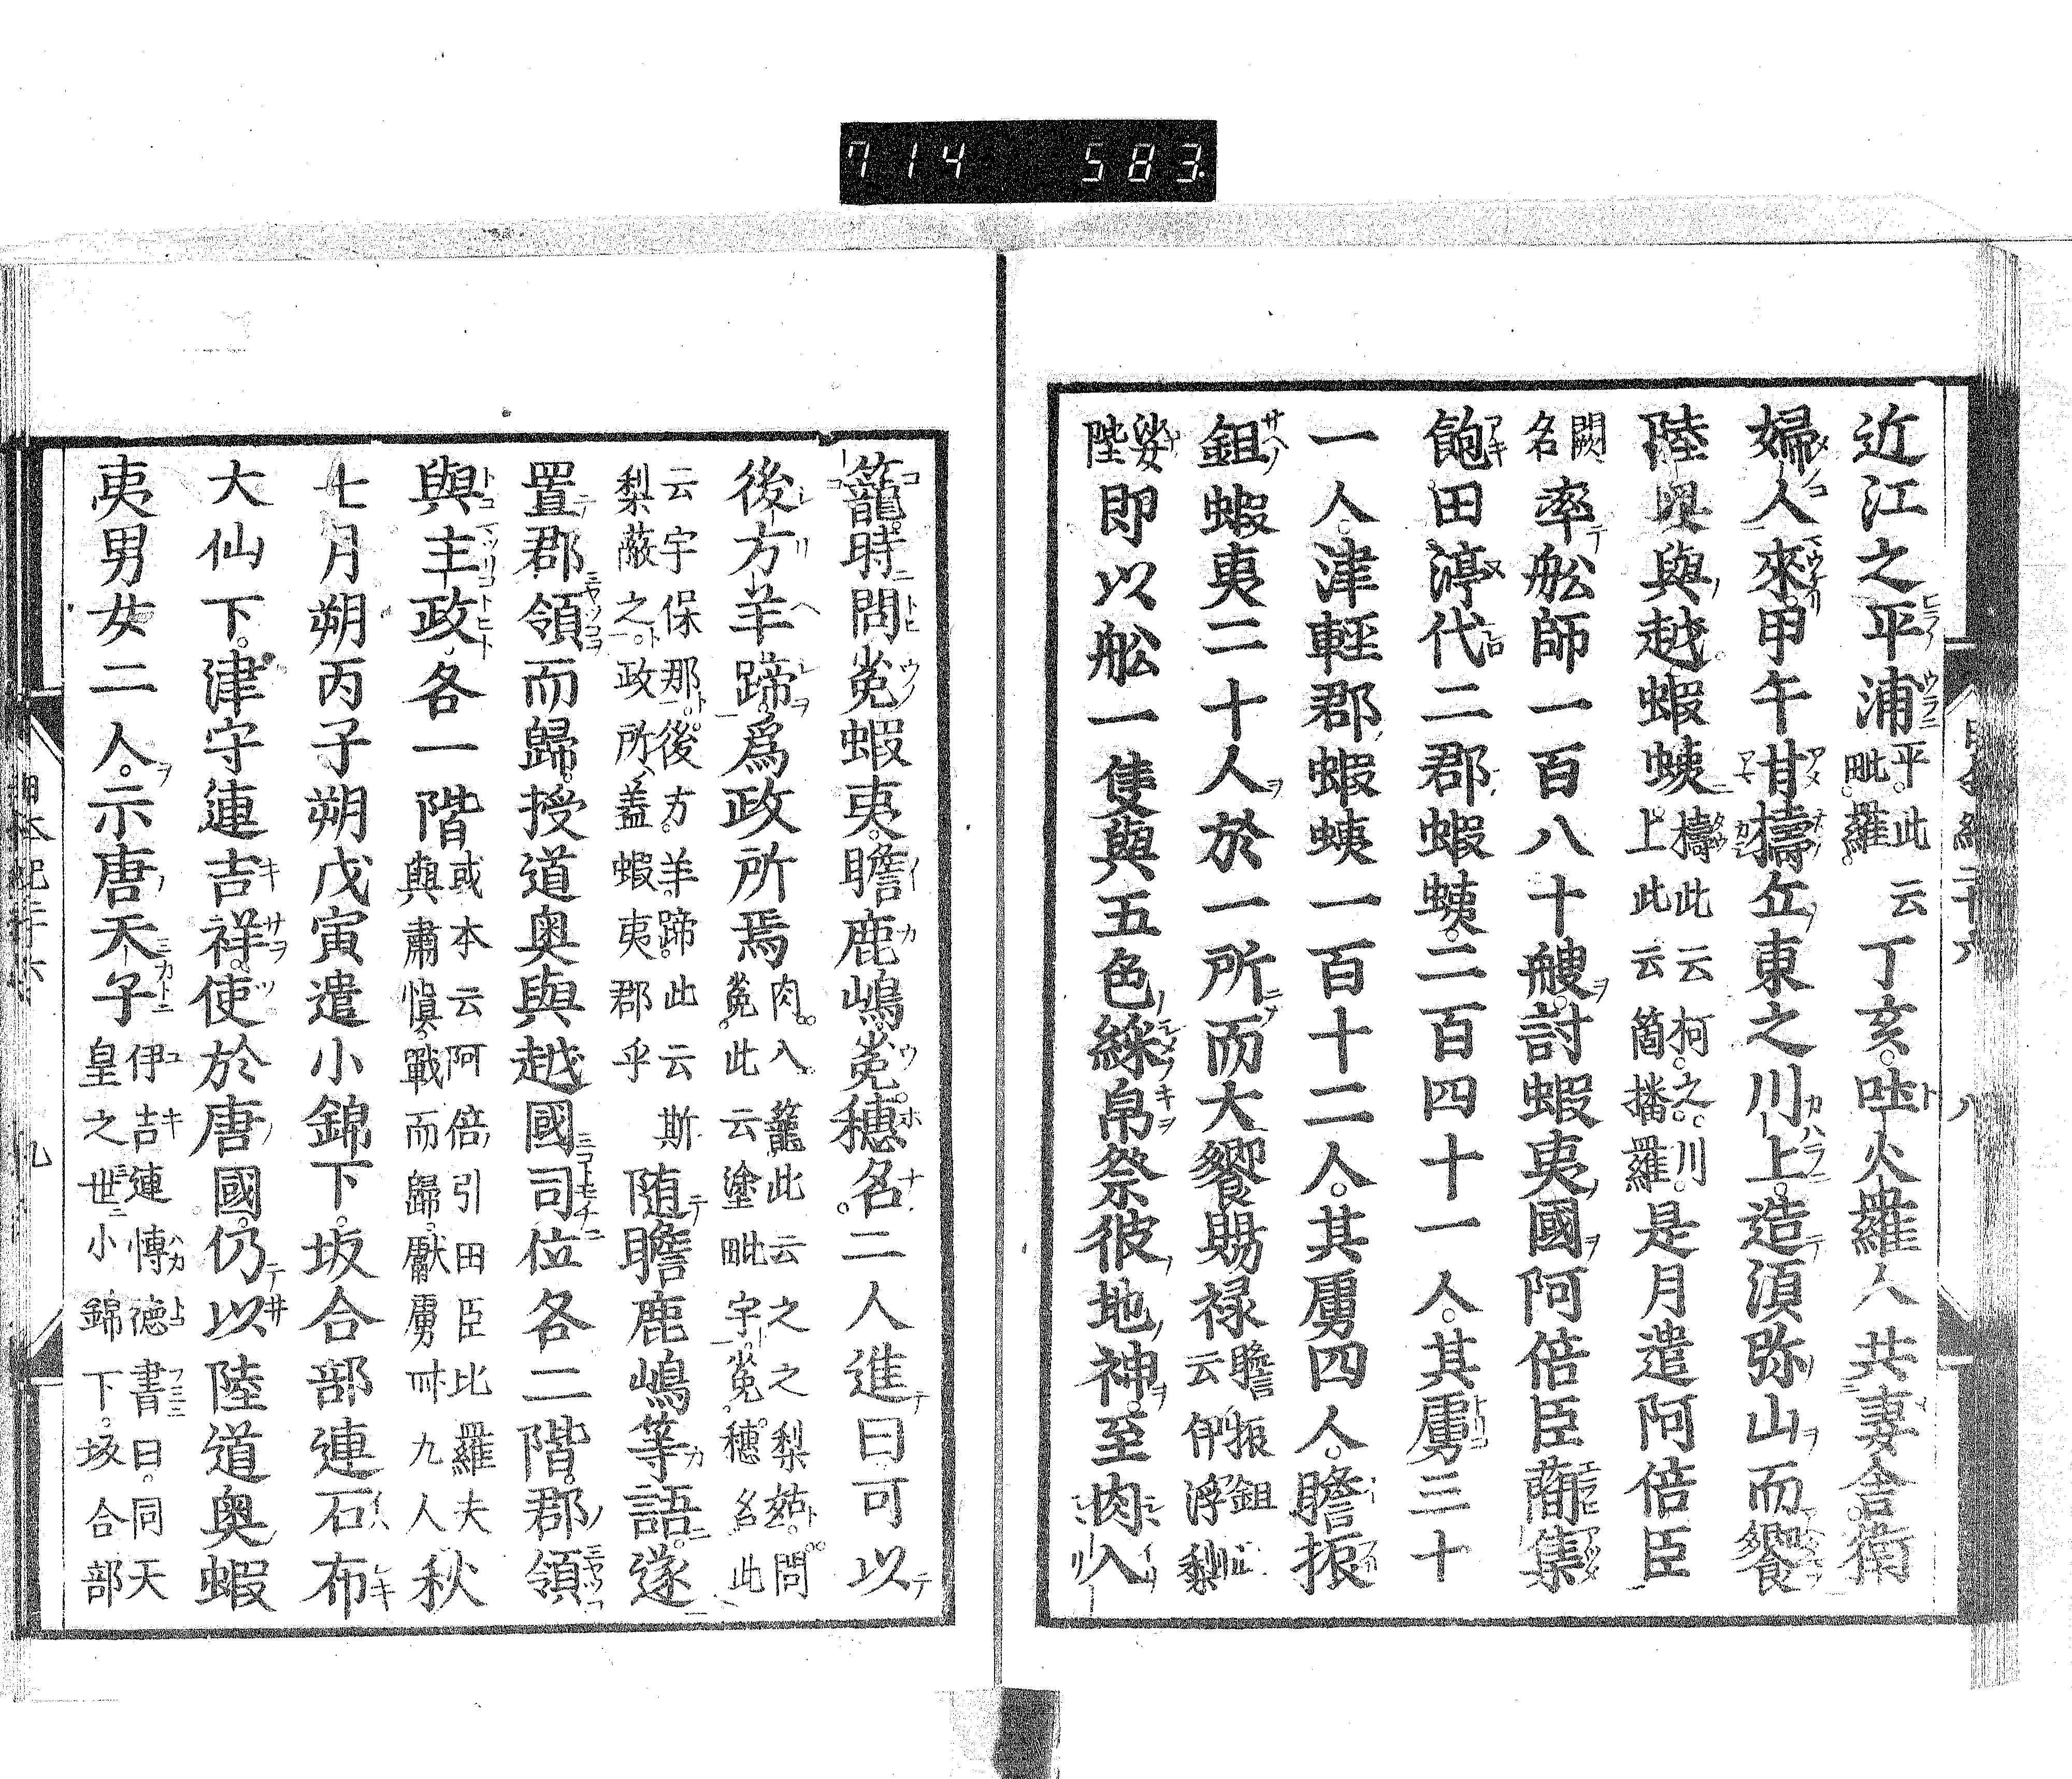 714 583
近江之平浦平。此云毗。羅。丁亥。吐火羅人共妻舍衛
婦人來。甲午甘檮丘東之川上。造須弥山而饗
陸奥與越蝦蛦。檮此云柯。之。川。上此云箇播羅是月遣阿倍臣
闕名率舩師一百八十艘。討蝦夷國阿倍臣蕳集
飽田渟代二郡蝦蛦。二百四十一人。其虜三十
一人。津輕郡蝦蛦一百十二人。其虜四人。膽振
鉏蝦夷二十人於一所而大饗賜禄膽振鉏此云伊浮梨
娑陛即以舩一隻與五色綵帛祭彼地神。至肉入
八
籠時問菟蝦夷。膽鹿嶋。菟穗名。二人進曰可以
後方羊蹄。爲政所焉肉。入籠此云之之梨姑。問菟。此云塗毗宇。菟。穗名此
云宇保那。後方。羊蹄。此云斯梨蔽之。政所蓋蝦夷郡乎隨膽鹿嶋等語。遂
置郡領而歸。授道奥與越國司位各二階。郡領
與主政。各一階或本云阿倍引田臣比羅夫與肅慎戰而歸。獻虜卌九人秋
七月朔丙子朔戊寅遣小錦下。坂合部連石布
大仙下。津守連吉祥。使於唐國。仍以陸道奥蝦
夷男女二人。示唐天子伊吉連愽徳書曰。同天皇之世小錦下。坂合部
九